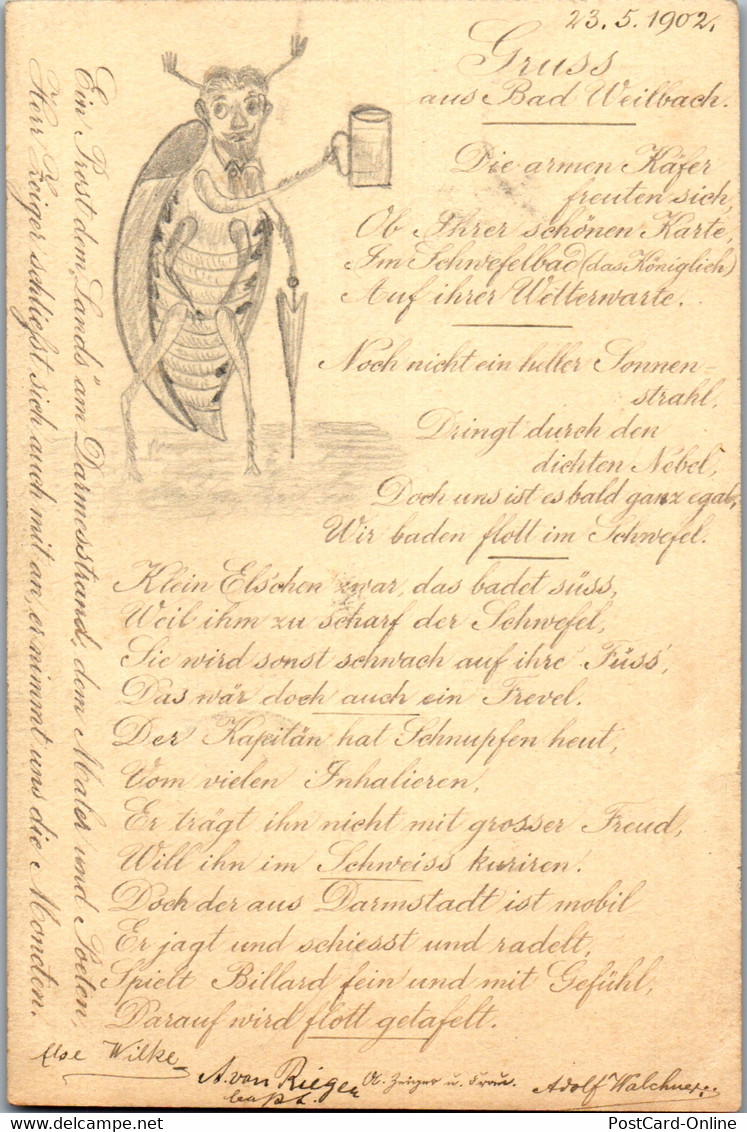 23. 5. 1902.
Gruss
aus Bad Weilbach.
Die armen Käfer
freuten sich,
Ob Ihrer schönen Karte,
Im Schwefelbad (das Königlich)
Auf ihrer Wetterwarte.
Noch nicht ein heller Sonnen=
strahl,
Dringt durch den
dichten Nebel,
Doch uns ist es bald ganz egal,
Wir baden flott im Schwefel.
Klein Elschen zwar, das badet süss,
Weil ihm zu scharf der Schwefel,
Sie wird sonst schwach auf ihre Füss',
Das wär doch auch ein Frevel.
Der Kapitän hat Schnupfen heut,
Vom vielen Inhalieren,
Er trägt ihn nicht mit grosser Freud,
Will ihn im Schweiss kuriren!
Doch der aus Darmstadt ist mobil
Er jagt und schiesst und radelt,
Spielt Billard fein und mit Gefühl,
Darauf wird flott getafelt.
Ein Prost dem „Lands" am Darmesstrand, dem Maler und Poeten,
Herr Zeiger schließt sich auch mit an, er nimmt uns die Monden.
Else Wilke
A. von Riegen
Capt.
A. Zeiger u. Frau.
Adolf Walchner.
PostCard-Online